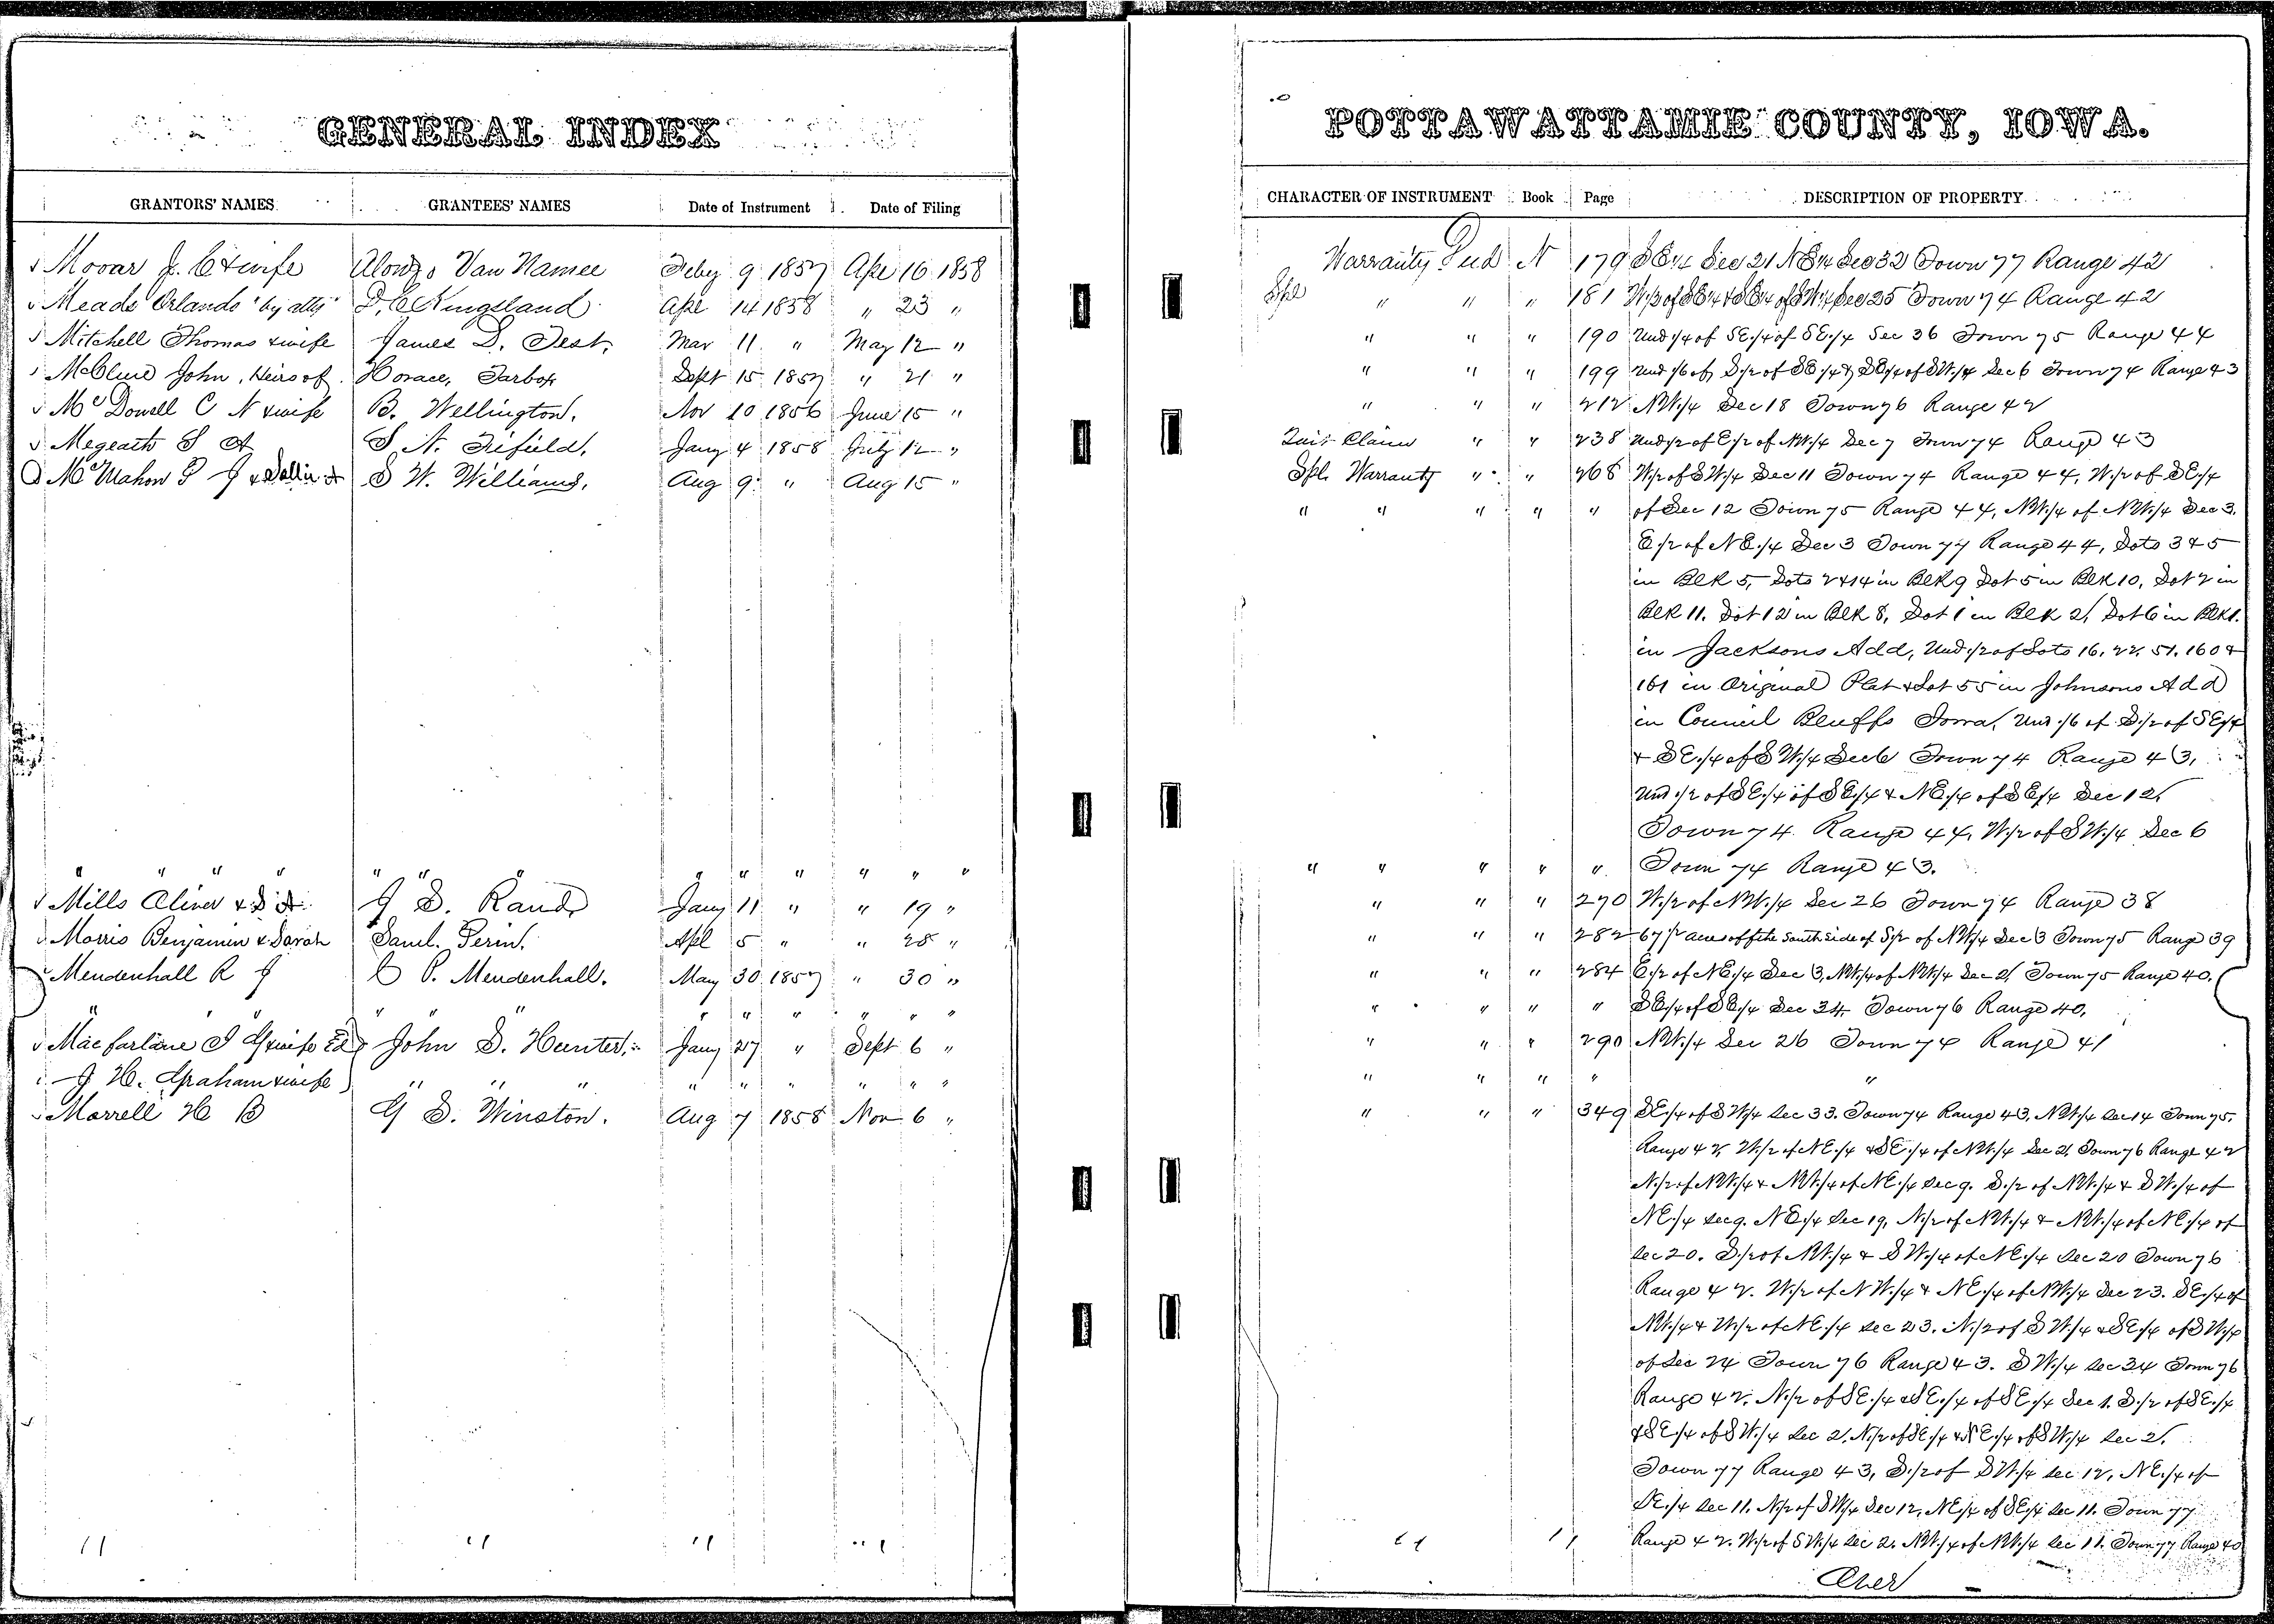 GENERAL INDEX
GRANTORS' NAMES GRANTEES' NAMES Date of Instrument Date of Filing
Movar J. C & wife Alonzo Van Namee Feby 9 1857 Apl 16 1858
Meads Orlando "by atty" D. C Kingsland Apl 14 1858 " 23 "
Mitchell Thomas & wife James D. Test, Mar 11 " May 12 "
McClure John, Heirs of Horace, Tarbox Sept 15 1857 " 21 "
Mc Dowell C N & wife B. Wellington, Nov 10 1856 June 15 "
Megeath S A S N. Fifield, Jany 4 1858 July 12 "
McMahon P J & Sallie A S W. Williams, Aug 9 " Aug 15 "
" " " " " " " " " " " " "
Mills Oliver & S A J S. Rand, Jany 11 " " 19 "
Morris Benjamin & Sarah Saml. Perin, Apl 5 " " 28 "
Mendenhall R J C P. Mendenhall. May 30 1857 " 30 "
" " " " " " " " " "
Macfarlane I G & wife Ex John S. Hunter, Jany 27 " Sept 6 "
J H. Graham & wife " " " " " " " " "
Morrell H B G S. Winston. Aug 7 1858 Nov 6 "
" " " "
POTTAWATTAMIE COUNTY, IOWA.
CHARACTER OF INSTRUMENT Book Page DESCRIPTION OF PROPERTY
Warranty Deed N 179 SE 1/4 Sec 21 NE 1/4 Sec 32 Town 77 Range 42
Spl " " " 181 W 1/2 of SE 1/4 & SE 1/4 of SW 1/4 Sec 25 Town 74 Range 42
" " " 190 Und 1/4 of SE 1/4 of SE 1/4 Sec 36 Town 75 Range 44
" " " 199 Und 1/6 of S 1/2 of SE 1/4 & SE 1/4 of SW 1/4 Sec 6 Town 74 Range 43
" " " 212 NW 1/4 Sec 18 Town 76 Range 42
Quit Claim " " 238 Und 1/2 of E 1/2 of NW 1/4 Sec 7 Town 74 Range 43
Spl. Warranty " " 268 W 1/2 of SW 1/4 Sec 11 Town 74 Range 44, W 1/2 of SE 1/4
" " " " " of Sec 12 Town 75 Range 44, NW 1/4 of NW 1/4 Sec 3.
E 1/2 of NE 1/4 Sec 3 Town 77 Range 44, Lots 3 & 5
in Blk 5, Lots 2 & 14 in Blk 9 Lot 5 in Blk 10, Lot 2 in
Blk 11. Lot 12 in Blk 8, Lot 1 in Blk 2, Lot 6 in Blk 1.
in Jacksons Add, Und 1/2 of Lots 16, 22, 51, 160 &
161 in Original Plat & Lot 55 in Johnsons Add
in Council Bluffs Iowa, Und 1/6 of S 1/2 of SE 1/4
& SE 1/4 of SW 1/4 Sec 6 Town 74 Range 43,
Und 1/2 of SE 1/4 of SE 1/4 & NE 1/4 of SE 1/4 Sec 12,
Town 74 Range 44, W 1/2 of SW 1/4 Sec 6
" " " " " Town 74 Range 43.
" " " 270 W 1/2 of NW 1/4 Sec 26 Town 74 Range 38
" " " 282 67 1/2 acres off the South side of S 1/2 of NW 1/4 Sec 3 Town 75 Range 39
" " " 284 E 1/2 of NE 1/4 Sec 3, NW 1/4 of NW 1/4 Sec 2, Town 75 Range 40,
" " " " SE 1/4 of SE 1/4 Sec 34 Town 76 Range 40,
" " " 290 NW 1/4 Sec 26 Town 74 Range 41
" " " " "
" " " 349 SE 1/4 of SW 1/4 Sec 33. Town 74 Range 43, NW 1/4 Sec 14 Town 75,
Range 42, W 1/2 of NE 1/4 & SE 1/4 of NW 1/4 Sec 2, Town 76 Range 42
N 1/2 of NW 1/4 & NW 1/4 of NE 1/4 Sec 9. S 1/2 of NW 1/4 & SW 1/4 of
NE 1/4 Sec 9. NE 1/4 Sec 19, N 1/2 of NW 1/4 & NW 1/4 of NE 1/4 of
Sec 20. S 1/2 of NW 1/4 & SW 1/4 of NE 1/4 Sec 20 Town 76
Range 42. W 1/2 of NW 1/4 & NE 1/4 of NW 1/4 Sec 23. SE 1/4 of
NW 1/4 & W 1/2 of NE 1/4 Sec 23. N 1/2 of SW 1/4 & SE 1/4 of SW 1/4
of Sec 24 Town 76 Range 43. SW 1/4 Sec 34 Town 76
Range 42, N 1/2 of SE 1/4 & SE 1/4 of SE 1/4 Sec 1. S 1/2 of SE 1/4
& SE 1/4 of SW 1/4 Sec 2, N 1/2 of SE 1/4 & NE 1/4 of SW 1/4 Sec 2,
Town 77 Range 43, S 1/2 of SW 1/4 Sec 12, NE 1/4 of
SE 1/4 Sec 11. N 1/2 of SW 1/4 Sec 12, NE 1/4 of SE 1/4 Sec 11. Town 77
" " Range 42. W 1/2 of SW 1/4 Sec 2. NW 1/4 of NW 1/4 Sec 11. Town 77 Range 40
Over